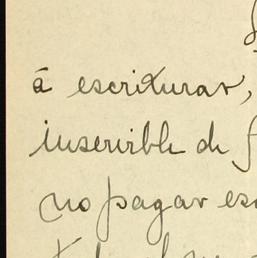 á escriturar,
inservible de
no pagar